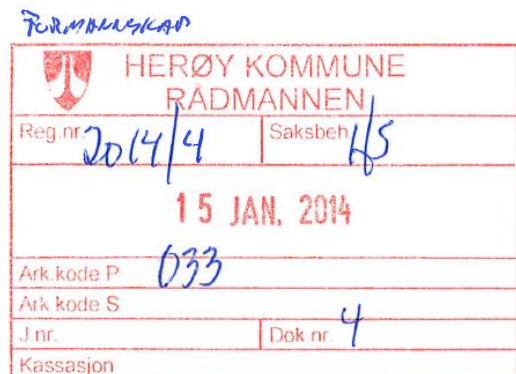 FORMANNSKAP
HERØY KOMMUNE
RÅDMANNEN
Reg.nr. 2014/4 Saksbeh. HS
15 JAN. 2014
Ark.kode P 033
Ark kode S
J.nr. Dok nr. 4
Kassasjon